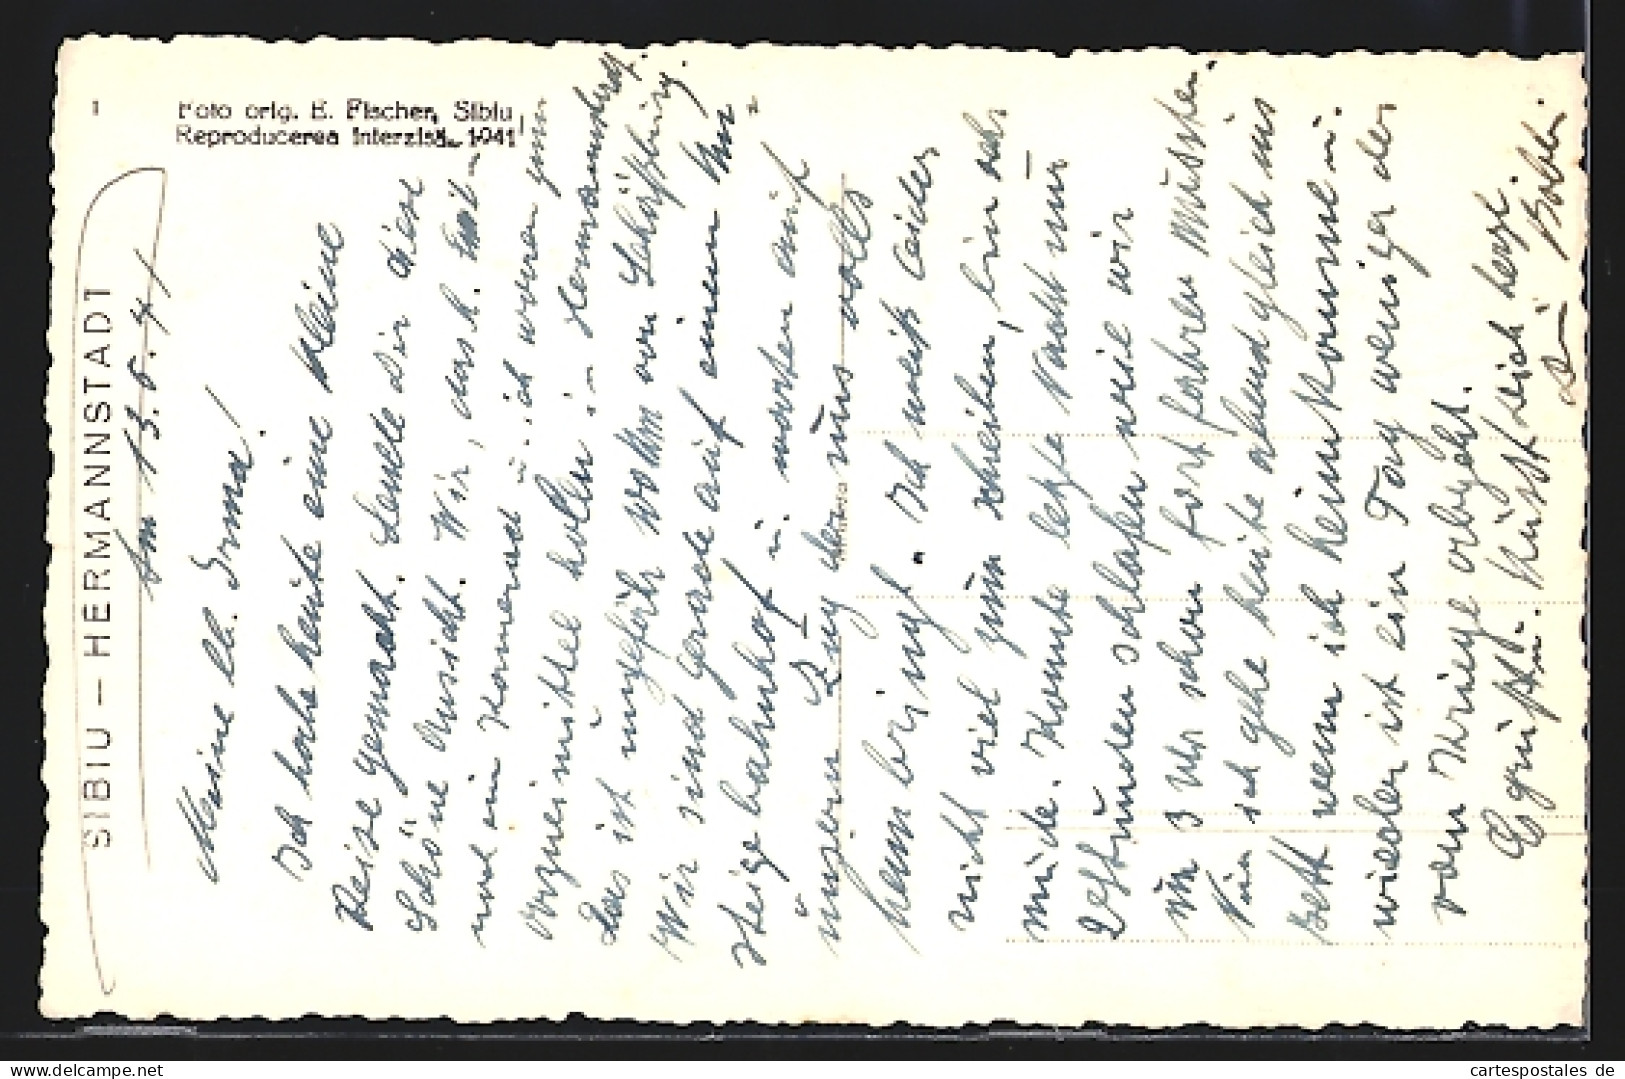 1
Foto orig. E. Fischer, Sibiu
Reproducerea interzisă. 1941
SIBIU – HERMANNSTADT
Am 13.6.41
Meine lb. Irma!
Ich habe heute eine kleine
Reise gemacht. Sende dir diese
schöne Ansicht. Wir, das h.
und ein Kamerad u. ich waren zum
Arzneimittel holen in Hermannstadt.
Das ist ungefähr 60 km von Schäßburg.
Wir sind gerade auf einem
steigebahnhof u. warten auf
unsern Zug der uns
heim bringt. Ich weiß leider
nicht viel zum schreiben, bin sehr
müde. Konnte letzte Nacht nur
2 Stunden schlafen weil wir
um 3 Uhr schon fort fahren mussten.
Na ich gehe heute abend gleich ins
Bett wenn ich heim komme u.
wieder ist ein Tag weniger der
vom Kriege abgeht.
Es grüßt u. küsst dich herzl.